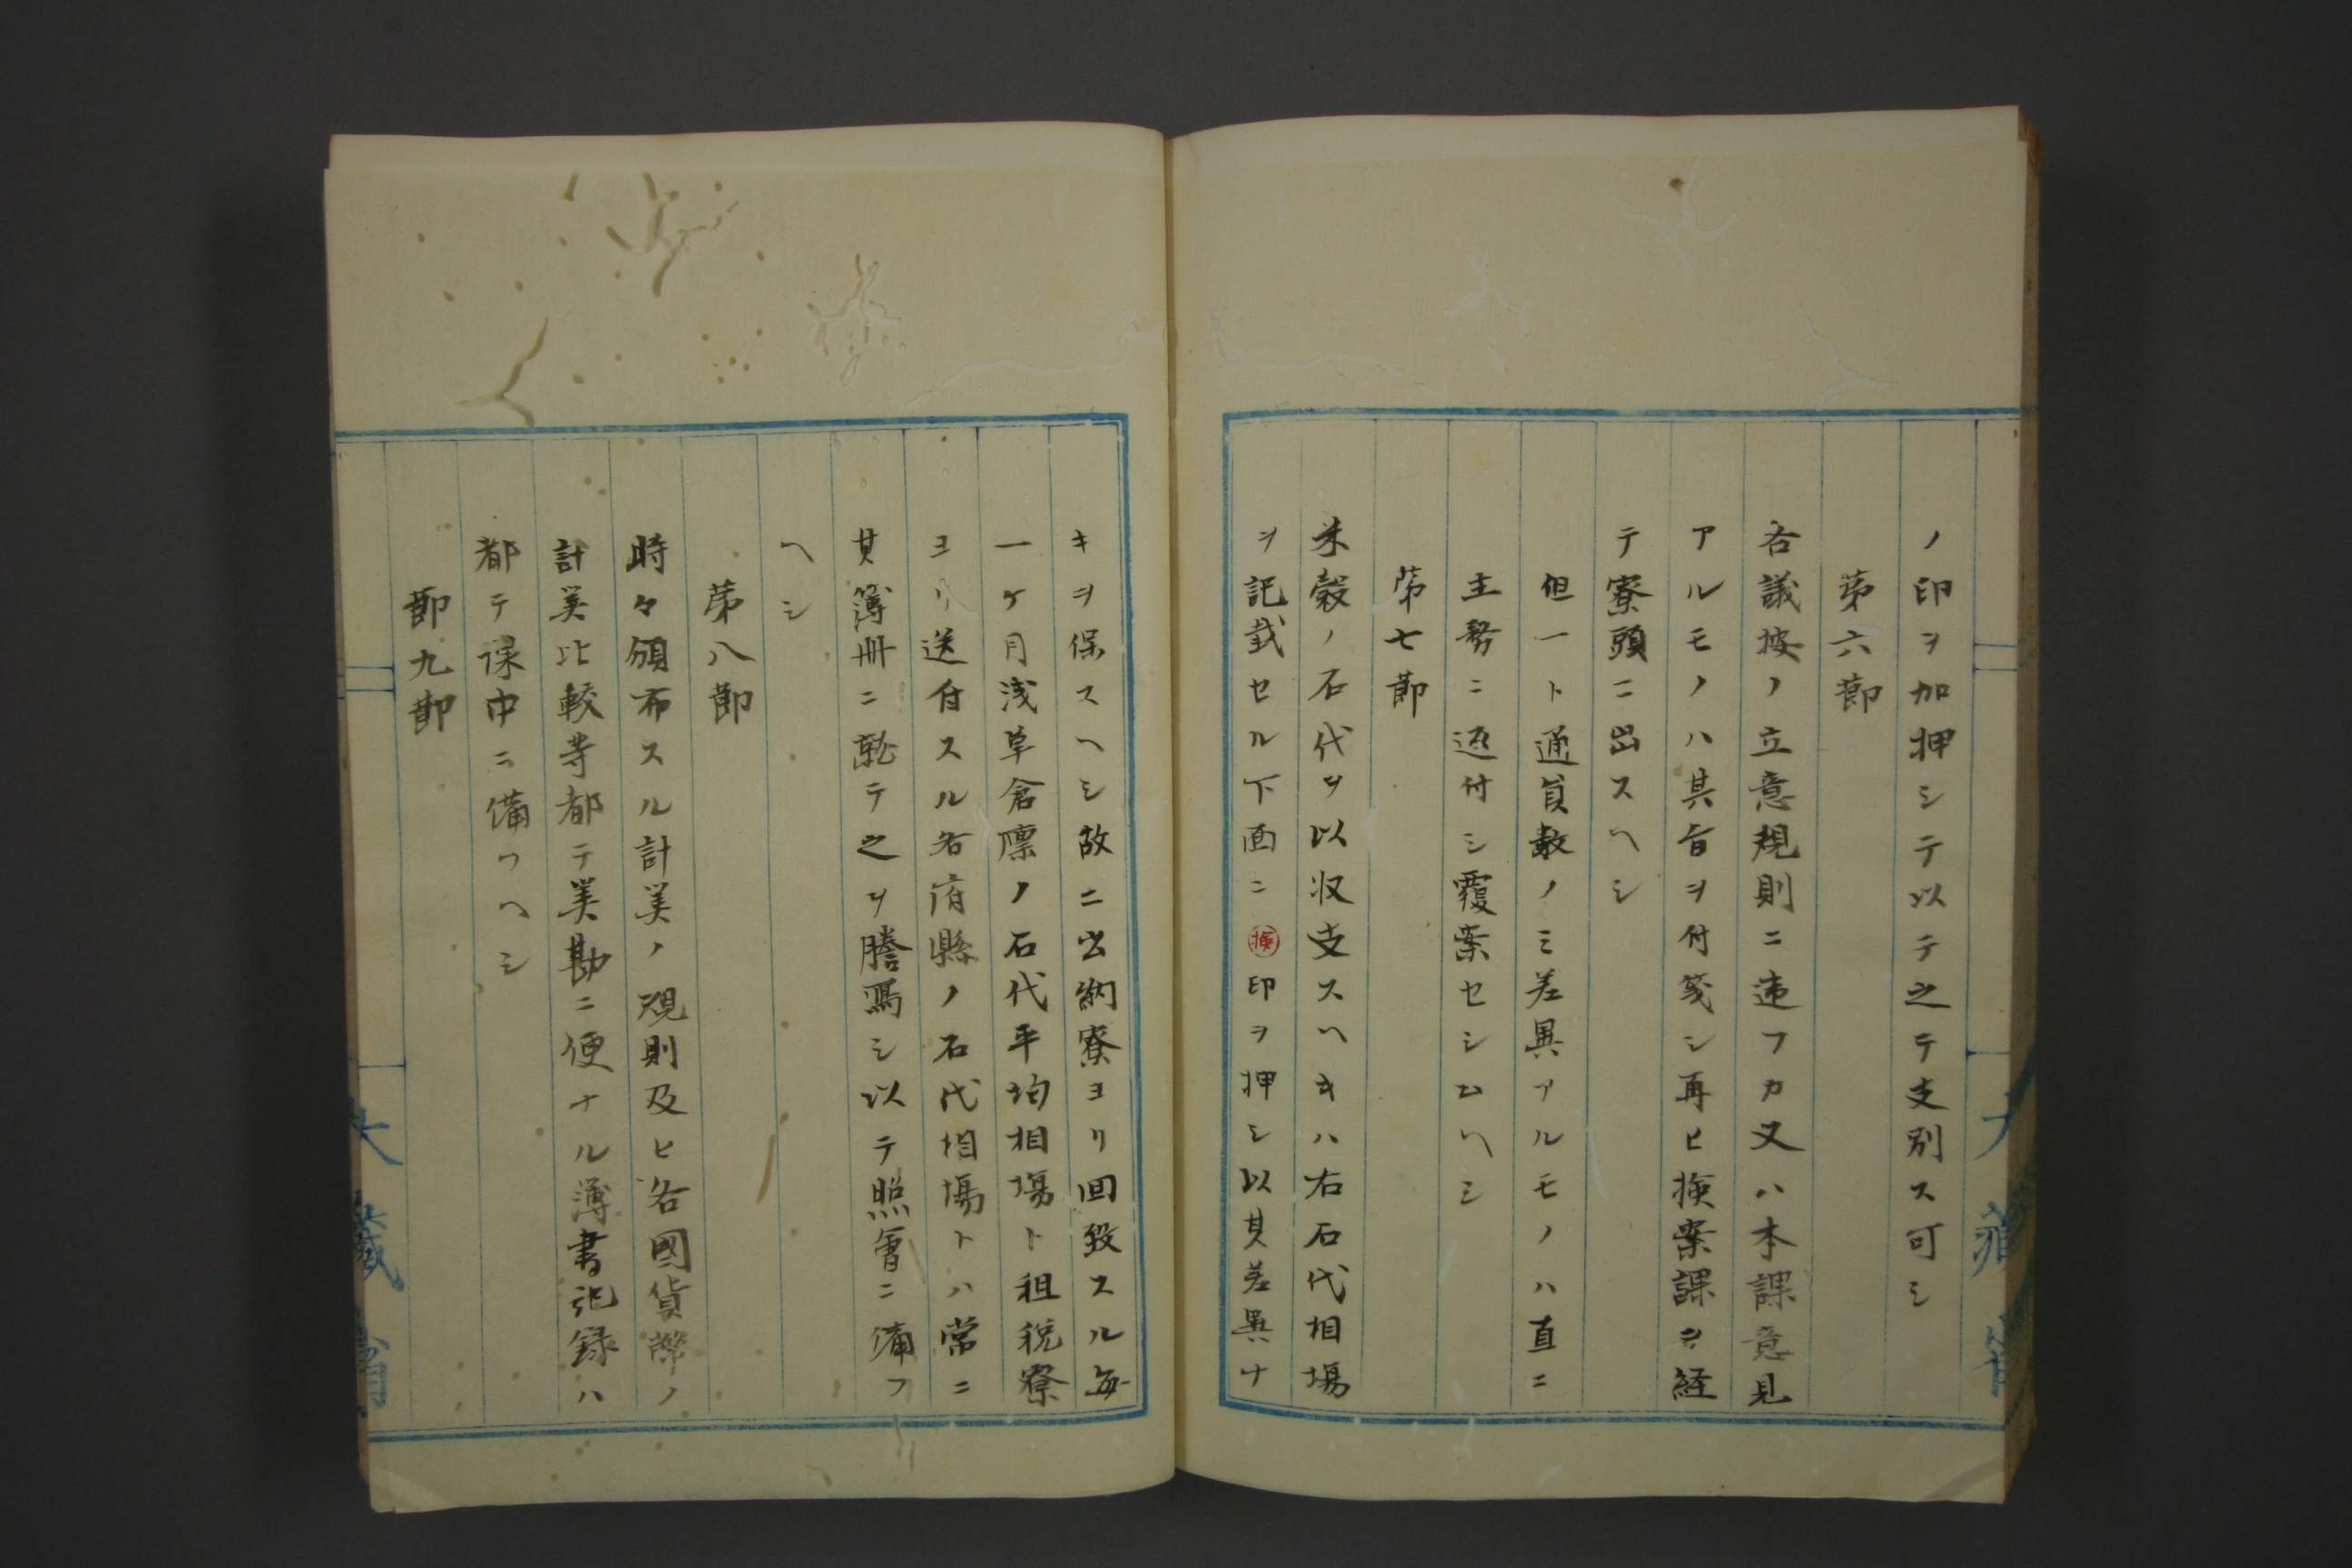 ノ印ヲ加押シテ以テ之テ支別ス可シ
第六節
各議按ノ立意規則ニ違フカ又ハ本課意見
アルモノハ其旨ヲ付箋シ再ヒ撿案課ヲ経
テ寮頭ニ出スヘシ
但一ト通員数ノミ差異アルモノハ直ニ
主務ニ返付シ覆案セシムヘシ
第七節
米穀ノ石代ヲ以収支スヘキハ右石代相場
ヲ記載セル下面ニ撿印ヲ押シ以其差異ナ
キヲ保スヘシ故ニ出納寮ヨリ回致スル毎
一ケ月浅草倉廩ノ石代平均相場ト租税寮
ヨリ送付スル各府縣ノ石代相場トハ常ニ
其簿册ニ就テ之ヲ謄寫シ以テ照會ニ備フ
ヘシ
第八節
時々頒布スル計算ノ規則及ヒ各國貨幣ノ
計算比較等都テ算勘ニ便ナル簿書記録ハ
都テ課中ニ備フヘシ
節九節
大藏省
大藏省